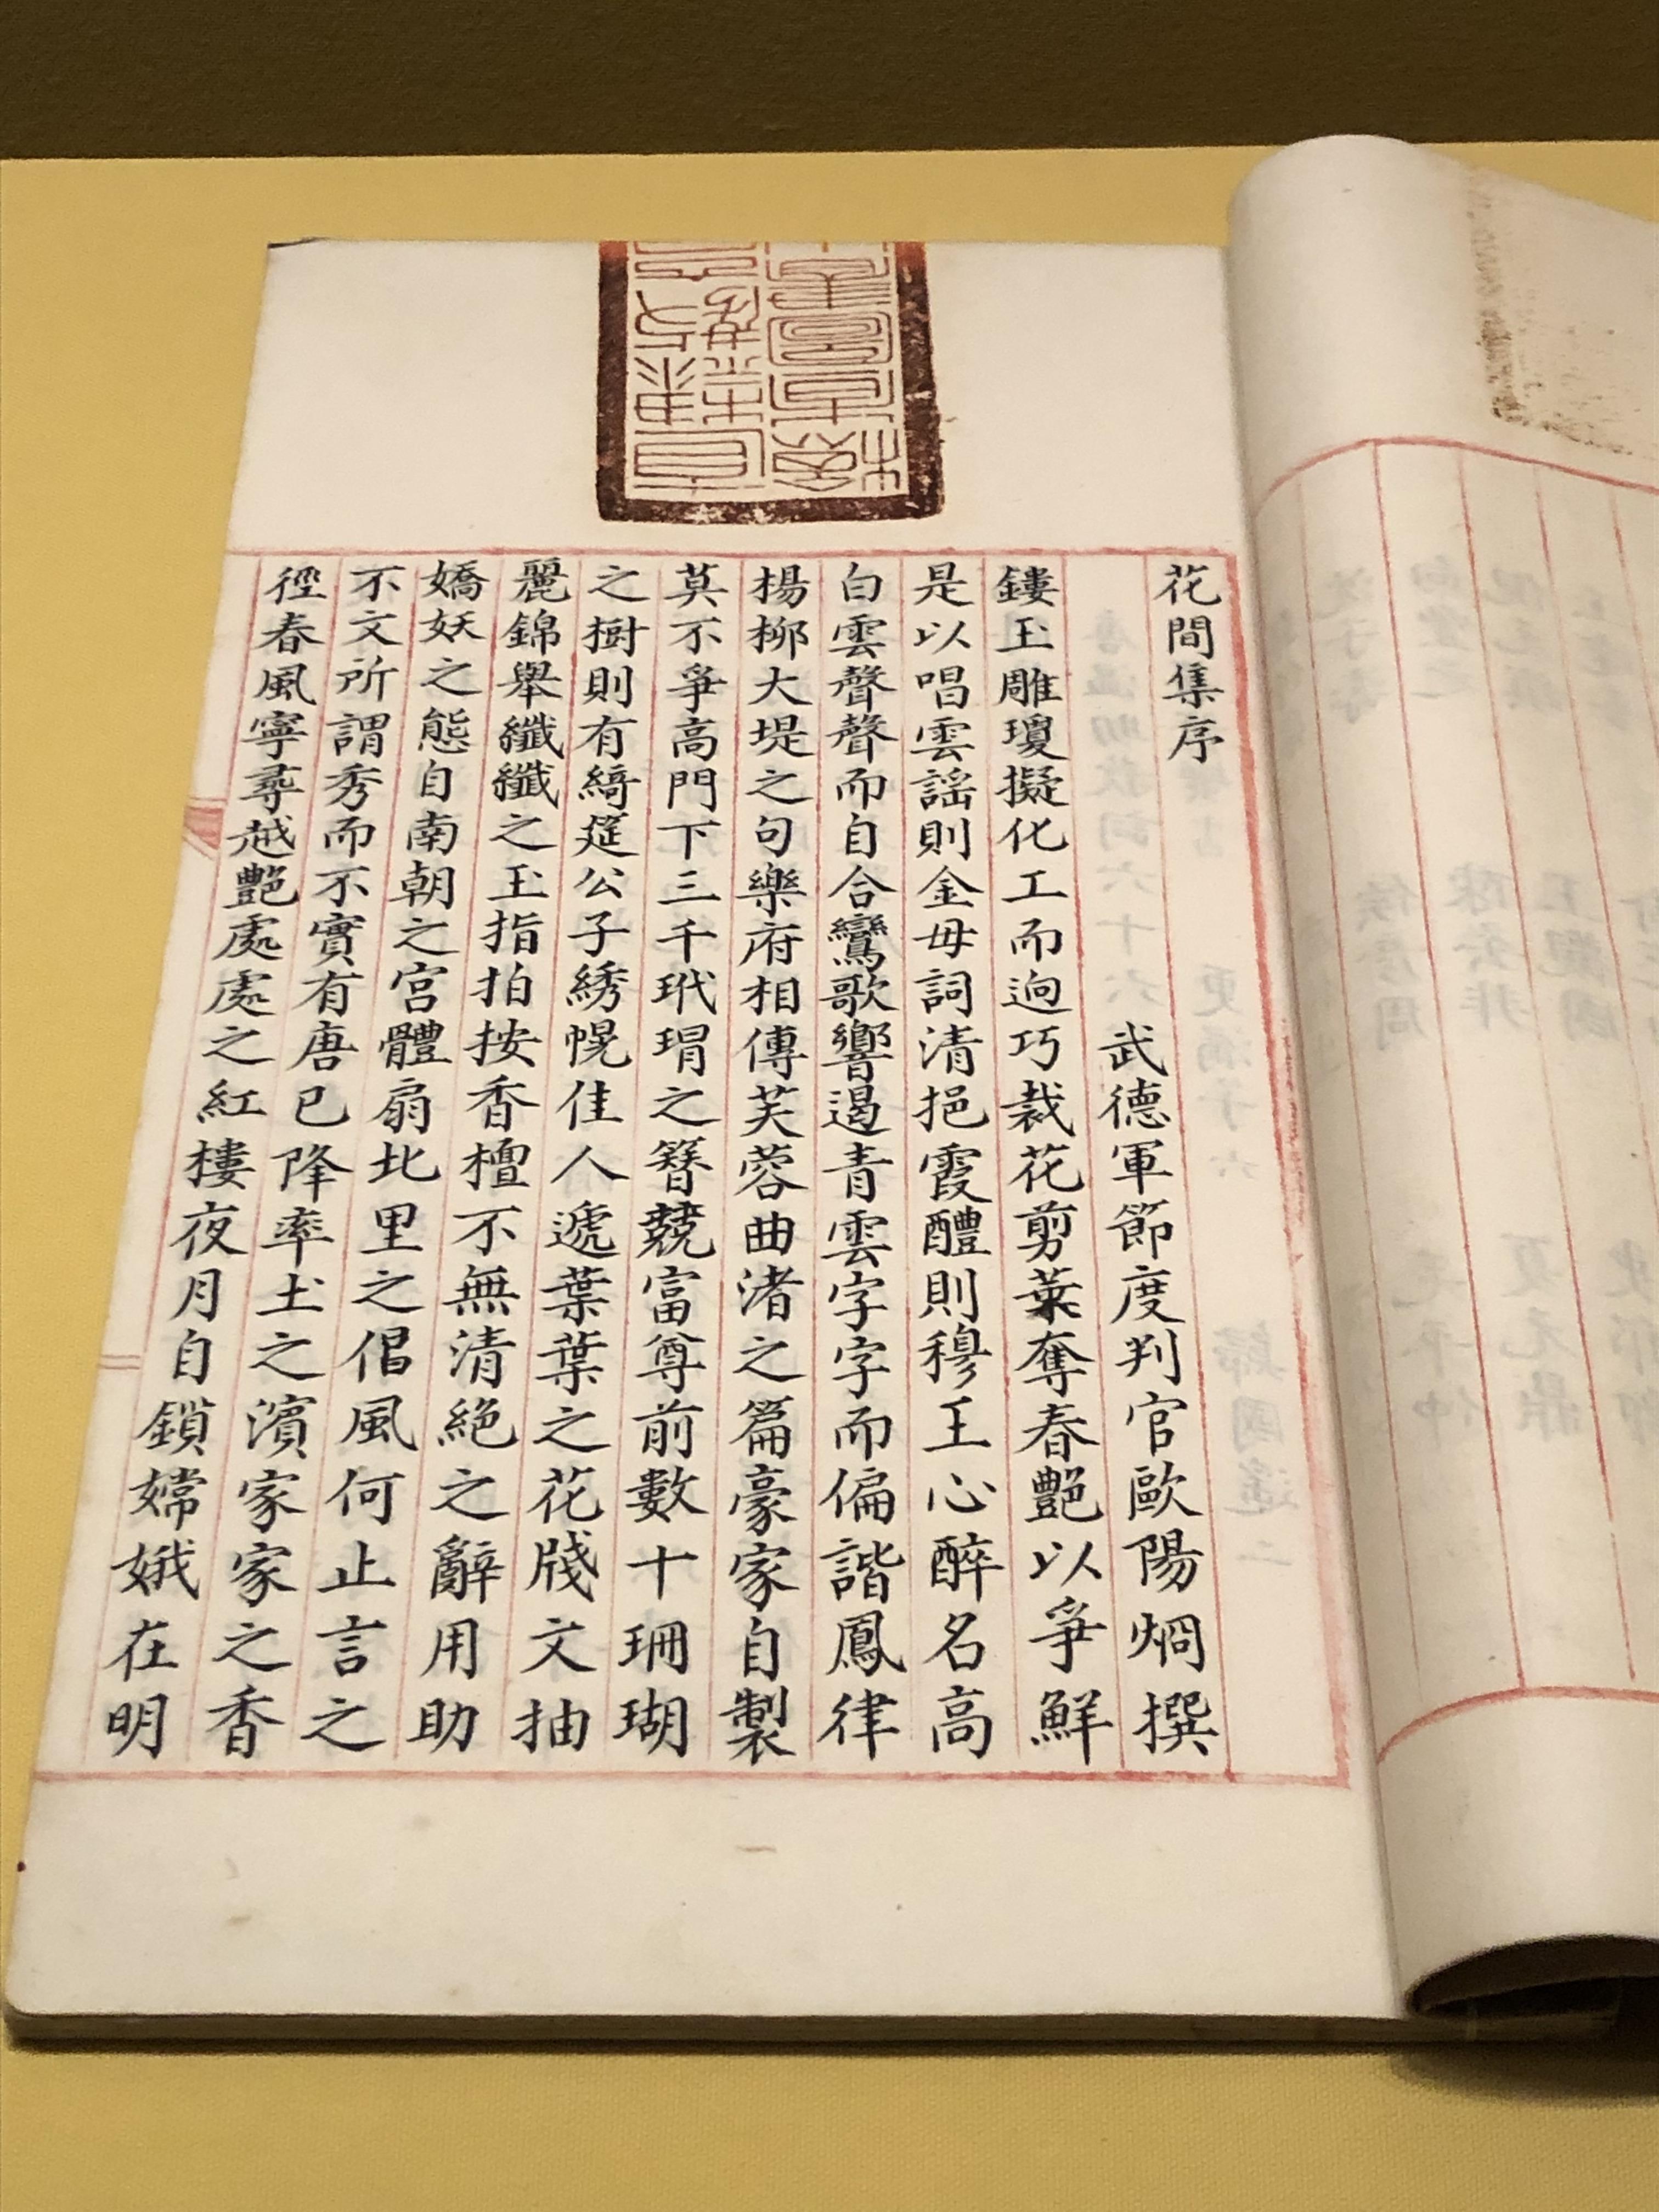 花間集序
武德軍節度判官歐陽烱撰
鏤玉雕瓊擬化工而逈巧裁花剪葉奪春艷以爭鮮
是以唱雲謠則金母詞清挹霞醴則穆王心醉名高
白雲聲聲而自合鸞歌響遏青雲字字而偏諧鳳律
楊栁大堤之句樂府相傳芙蓉曲渚之篇豪家自製
莫不爭高門下三千玳瑁之簪競富尊前數十珊瑚
之樹則有綺筵公子綉幌佳人遞葉葉之花牋文抽
麗錦舉纖纖之玉指拍按香檀不無清絕之辭用助
嬌妖之態自南朝之宮體扇北里之倡風何止言之
不文所謂秀而不實有唐已降率土之濱家家之香
徑春風寧尋越艷處處之紅樓夜月自鎖嫦娥在明